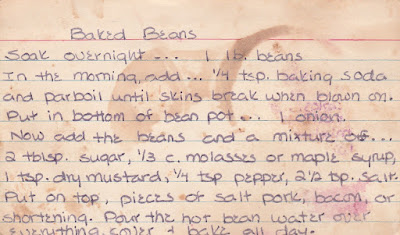 Baked Beans
Soak overnight ... 1 lb. beans
In the morning, add ... 1/4 tsp. baking soda
and parboil until skins break when blown on.
Put in bottom of bean pot ... 1 onion.
Now add the beans and a mixture of ...
2 tblsp. sugar, 1/3 c. molasses or maple syrup,
1 tsp. dry mustard, 1/4 tsp pepper, 2 1/2 tsp. salt.
Put on top, pieces of salt pork, bacon, or
shortening. Pour the hot bean water over
everything, cover & bake all day.